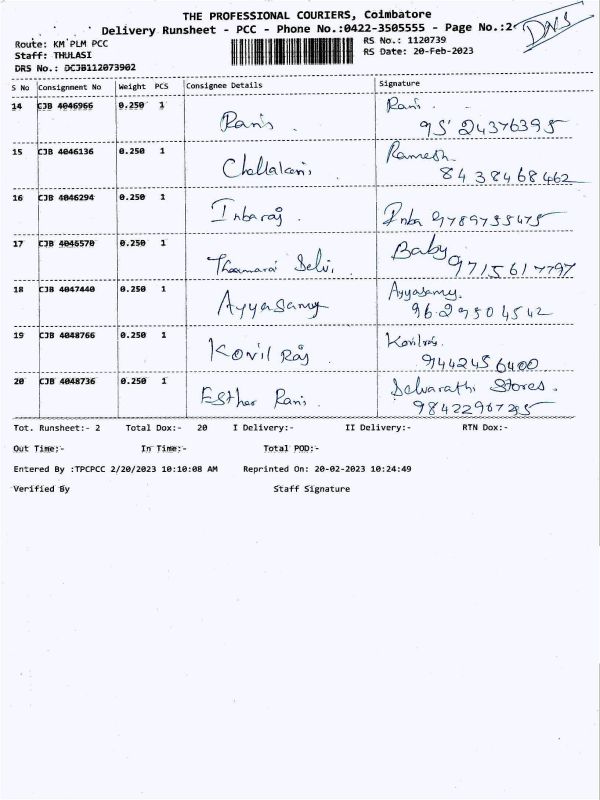 THE PROFESSIONAL COURIERS, Coimbatore
Delivery Runsheet - PCC - Phone No.:0422-3505555 - Page No.:2
DNS
Route: KM PLM PCC
RS No.: 1120739
Staff: THULASI
RS Date: 20-Feb-2023
DRS No.: DCJB112073902
S No Consignment No Weight PCS Consignee Details Signature
14 CJB 4046966 0.250 1 Rani Rani
95 24376395
15 CJB 4046136 0.250 1 Ramesh
8438468462
16 CJB 4046294 0.250 1 Inbaraj Inba
17 CJB 4046570 0.250 1 Thamarai Selvi Baby
9715617797
18 CJB 4047440 0.250 1 Ayyasamy Ayyasamy
9629504542
19 CJB 4048766 0.250 1 Kovil Raj
9442456400
20 CJB 4048736 0.250 1 Esther Rani Selvarathi Stores.
Tot. Runsheet:- 2 Total Dox:- 20 I Delivery:- II Delivery:- RTN Dox:-
Out Time:- In Time:- Total POD:-
Entered By :TPCPCC 2/20/2023 10:10:08 AM Reprinted On: 20-02-2023 10:24:49
Verified By Staff Signature